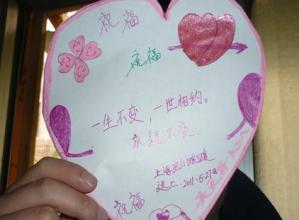 祝福
祝福
一生不变，一世相约。
永远不变
上海
送上 2011.5.27日
祝福